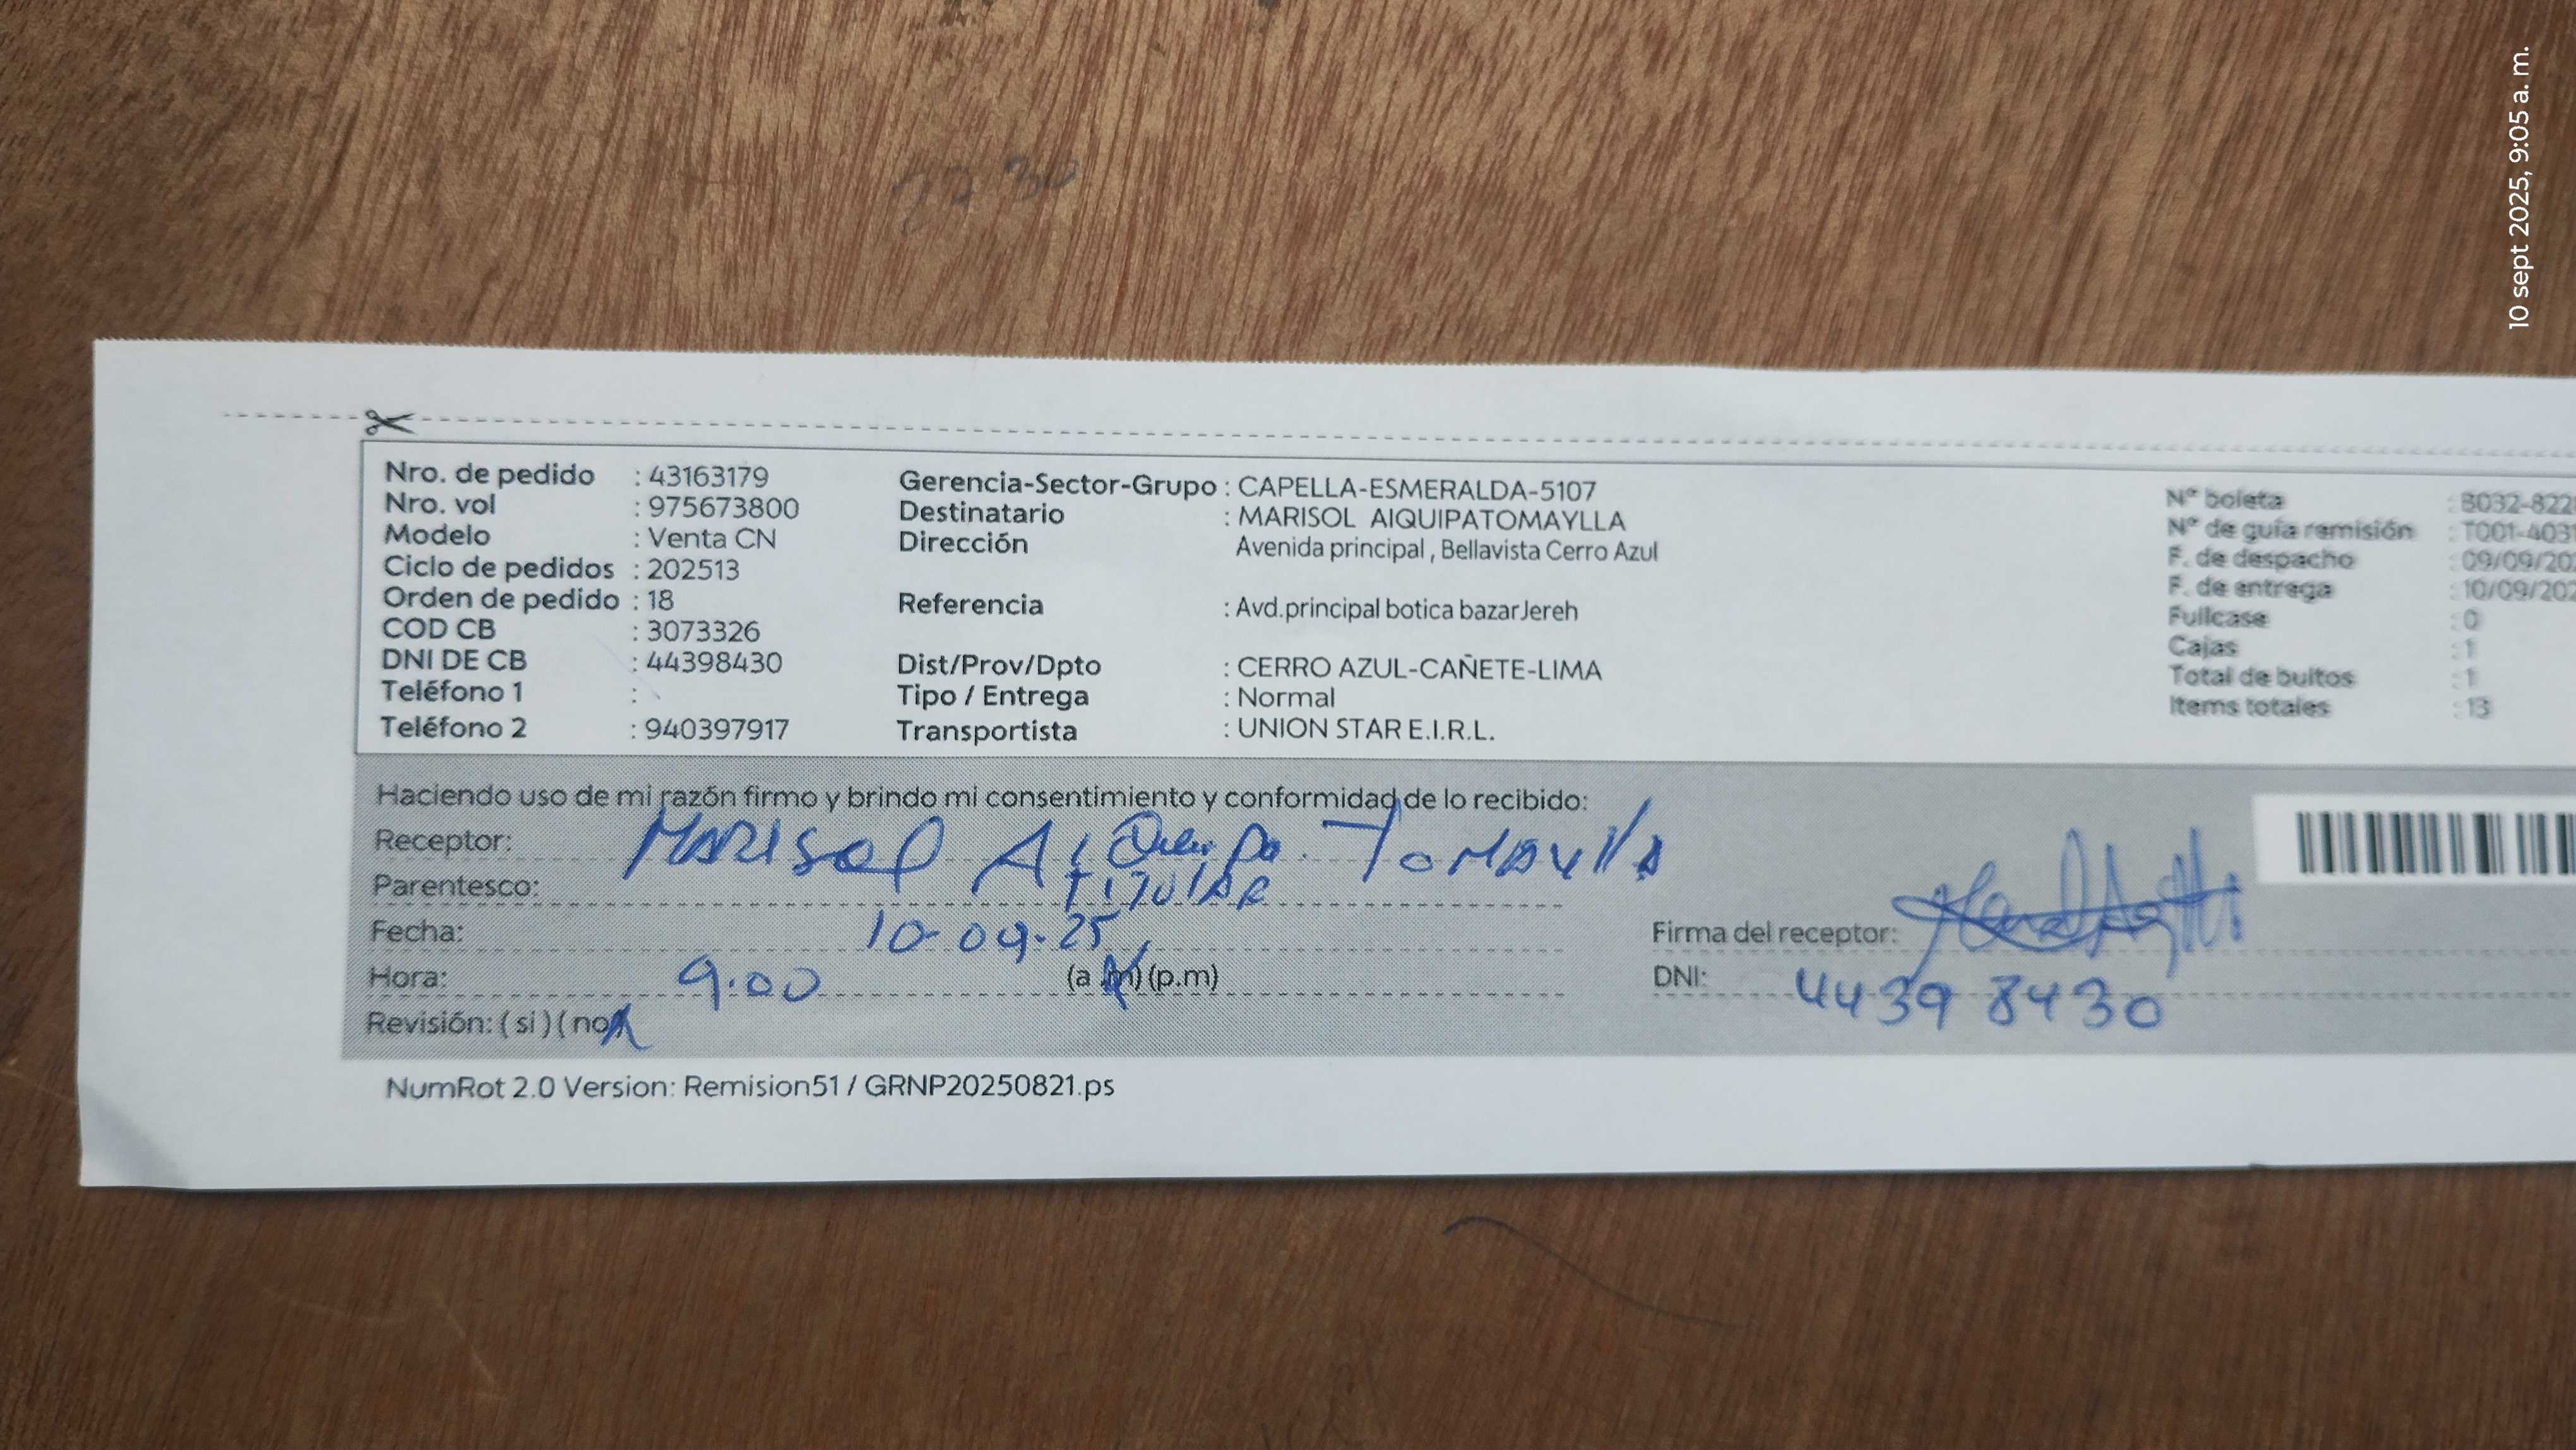 10 sept 2025, 9:05 a. m.
Nro. de pedido : 43163179
Nro. vol : 975673800
Modelo : Venta CN
Ciclo de pedidos : 202513
Orden de pedido : 18
COD CB : 3073326
DNI DE CB : 44398430
Teléfono 1 :
Teléfono 2 : 940397917
Gerencia-Sector-Grupo : CAPELLA-ESMERALDA-5107
Destinatario : MARISOL AIQUIPATOMAYLLA
Dirección Avenida principal , Bellavista Cerro Azul
Referencia : Avd.principal botica bazarJereh
Dist/Prov/Dpto : CERRO AZUL-CAÑETE-LIMA
Tipo / Entrega : Normal
Transportista : UNION STAR E.I.R.L.
N° boleta : B032-822
N° de guía remisión : T001-403
F. de despacho : 09/09/20
F. de entrega : 10/09/202
Fullcase : 0
Cajas : 1
Total de bultos : 1
Items totales : 13
Haciendo uso de mi razón firmo y brindo mi consentimiento y conformidad de lo recibido:
Receptor: MARISol AiQuipa Tomaylla
Parentesco: TITULAR
Fecha: 10-09-25
Hora: 9:00 (a.m) (p.m)
Revisión: ( si ) ( no
Firma del receptor:
DNI: 44398430
NumRot 2.0 Version: Remision51 / GRNP20250821.ps